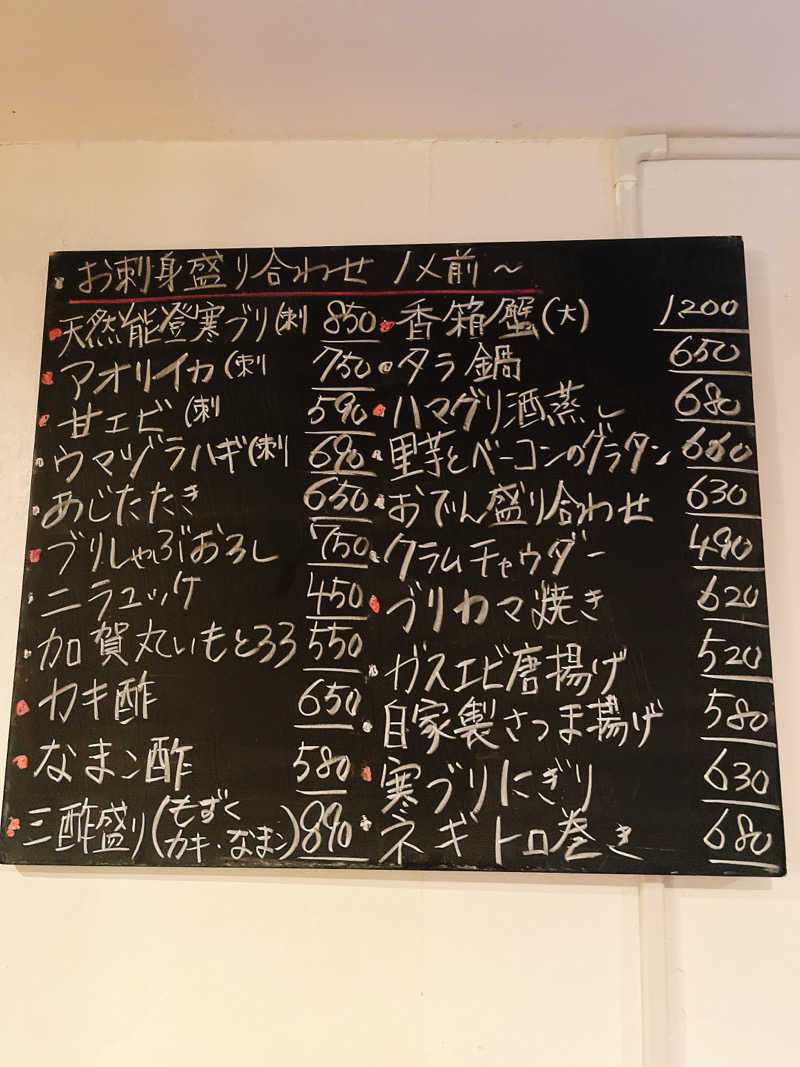 お刺身盛り合わせ 1人前〜
天然能登寒ブリ(刺 850
アオリイカ(刺 750
甘エビ(刺 590
ウマヅラハギ(刺 690
あじたたき 650
ブリしゃぶおろし 750
ニラユッケ 450
加賀丸いもとろろ 550
カキ酢 650
なまこ酢 580
三酢盛り(もずく カキ・なまこ) 890
香箱蟹(大) 1200
タラ鍋 650
ハマグリ酒蒸し 680
里芋とベーコンのグラタン
おでん盛り合わせ 630
クラムチャウダー 490
ブリカマ焼き 620
ガスエビ唐揚げ 520
自家製さつま揚げ 580
寒ブリにぎり 630
ネギトロ巻き 680